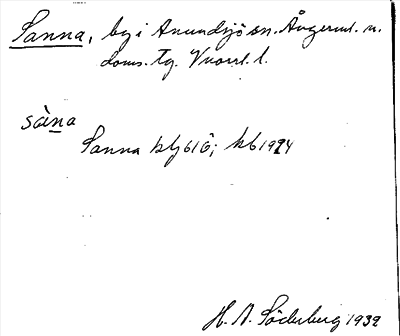 Sanna, by i Anundsjö sn. Ångerml. n.
doms. tg. Vnorrl. l.
sàna
Sanna blj 616; kb 1924
H. A. Söderberg 1932